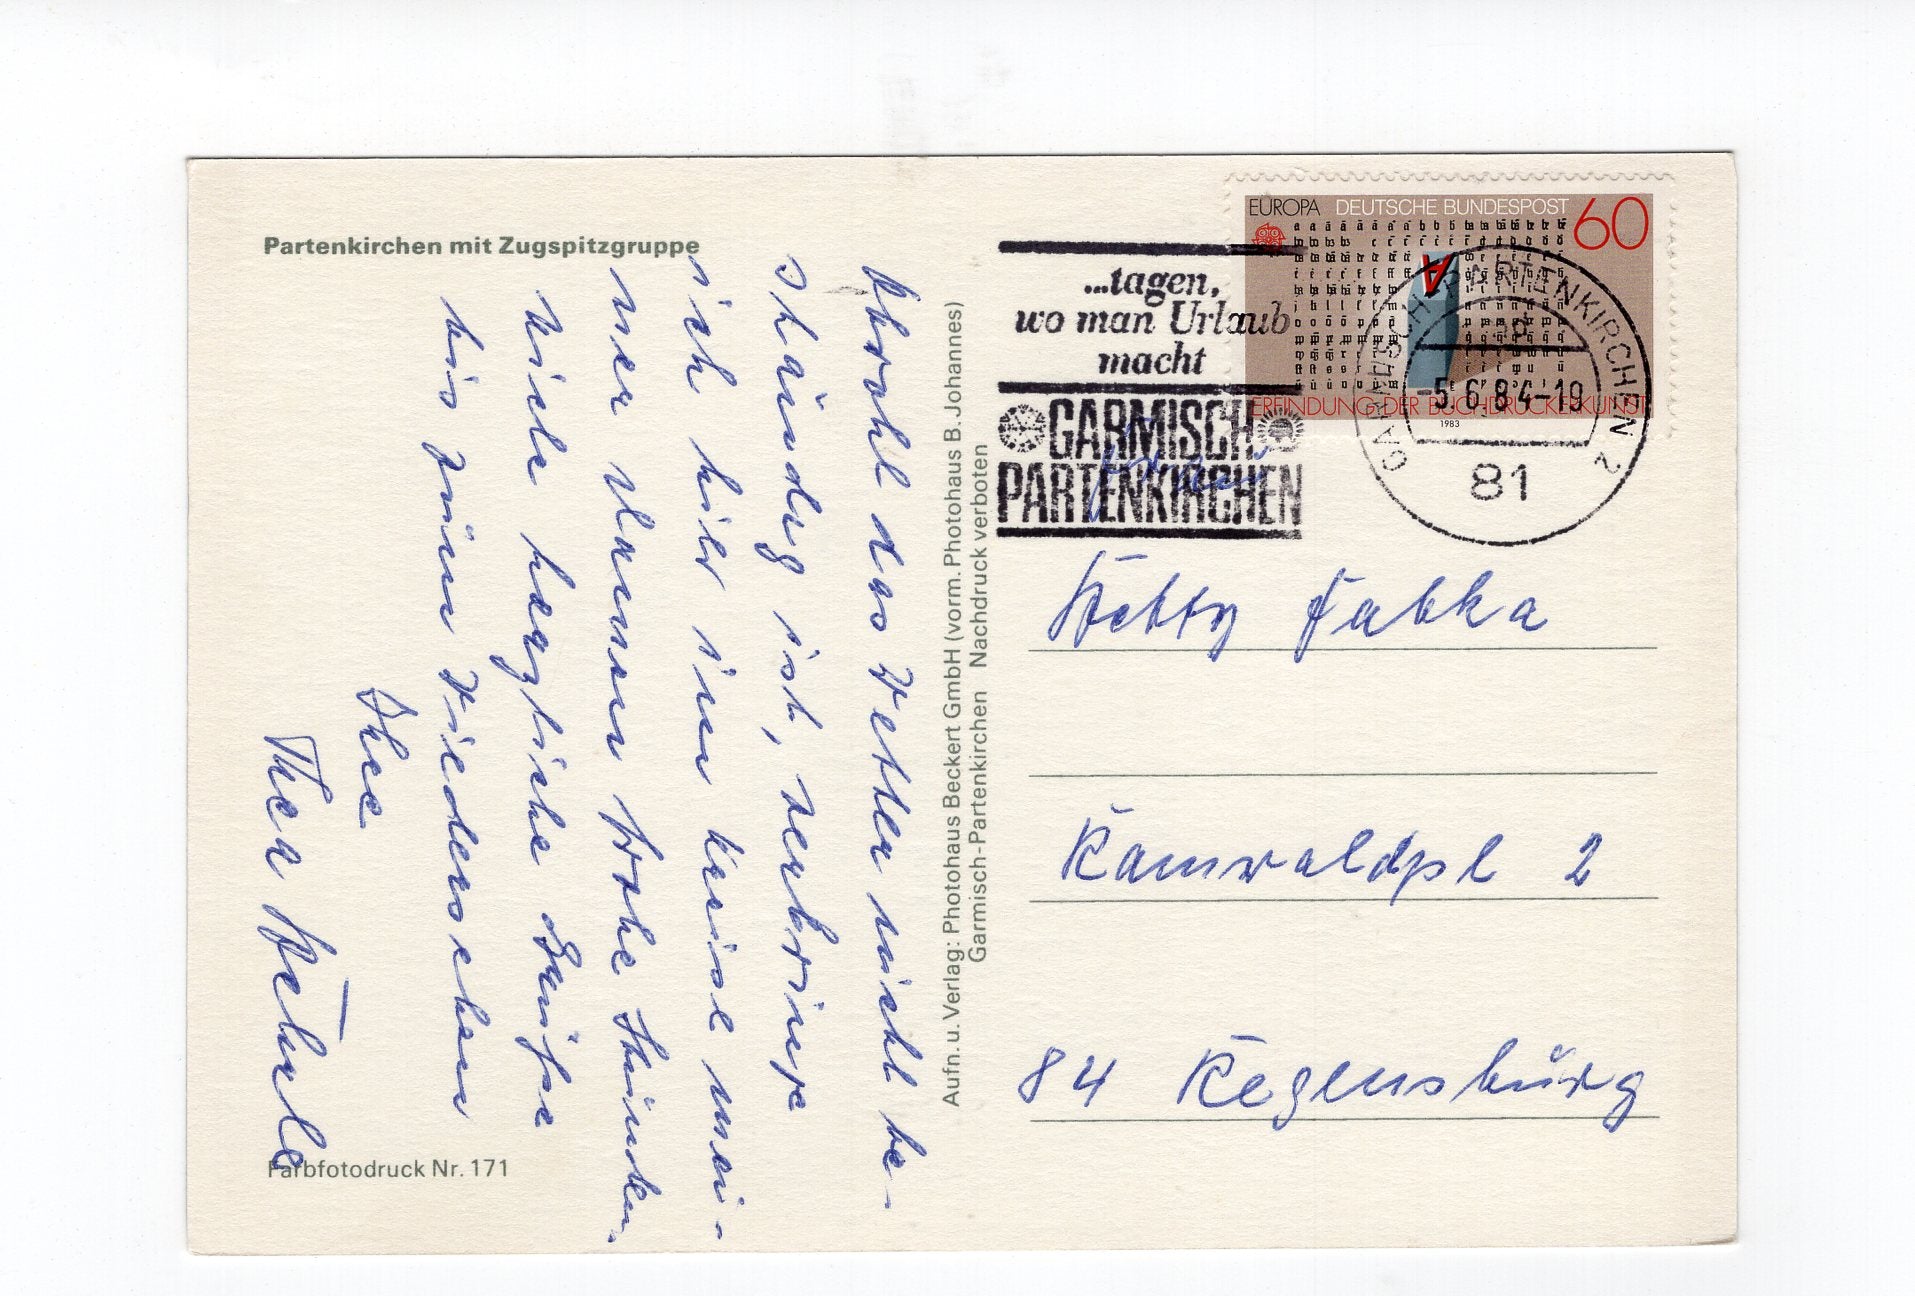 Partenkirchen mit Zugspitzgruppe
Obwohl das Wetter nicht be-
ständig ist, verbringe
ich hier im Kreise mei-
ner Lieben frohe Stunden.
Viele herzliche Grüße
bis zum Wiedersehen
Ihre
Thea
Farbfotodruck Nr. 171
Aufn. u. Verlag: Photohaus Beckert GmbH (vorm. Photohaus B. Johannes)
Garmisch-Partenkirchen Nachdruck verboten
...tagen,
wo man Urlaub
macht
GARMISCH
PARTENKIRCHEN
EUROPA DEUTSCHE BUNDESPOST 60
ERFINDUNG DER BUCHDRUCKERKUNST
1983
GARMISCH-PARTENKIRCHEN 2
-5.6.84-19
81
84 Regensburg